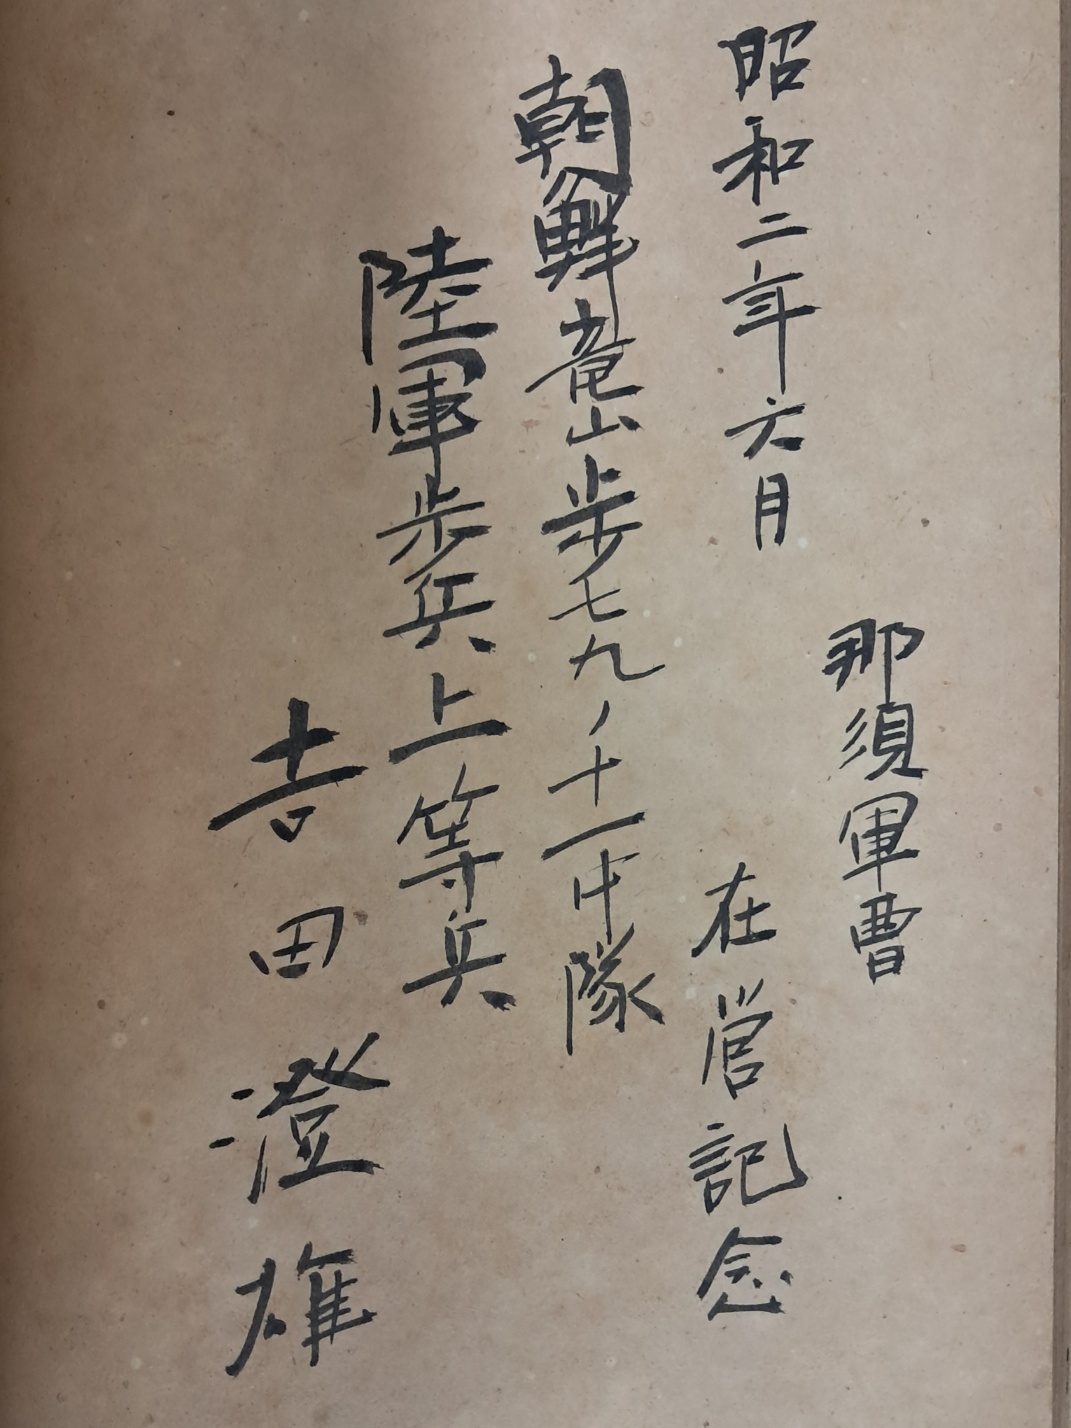 那須軍曹
昭和二年六月 在営記念
朝鮮竜山歩七九ノ十一中隊
陸軍歩兵上等兵
吉田澄雄